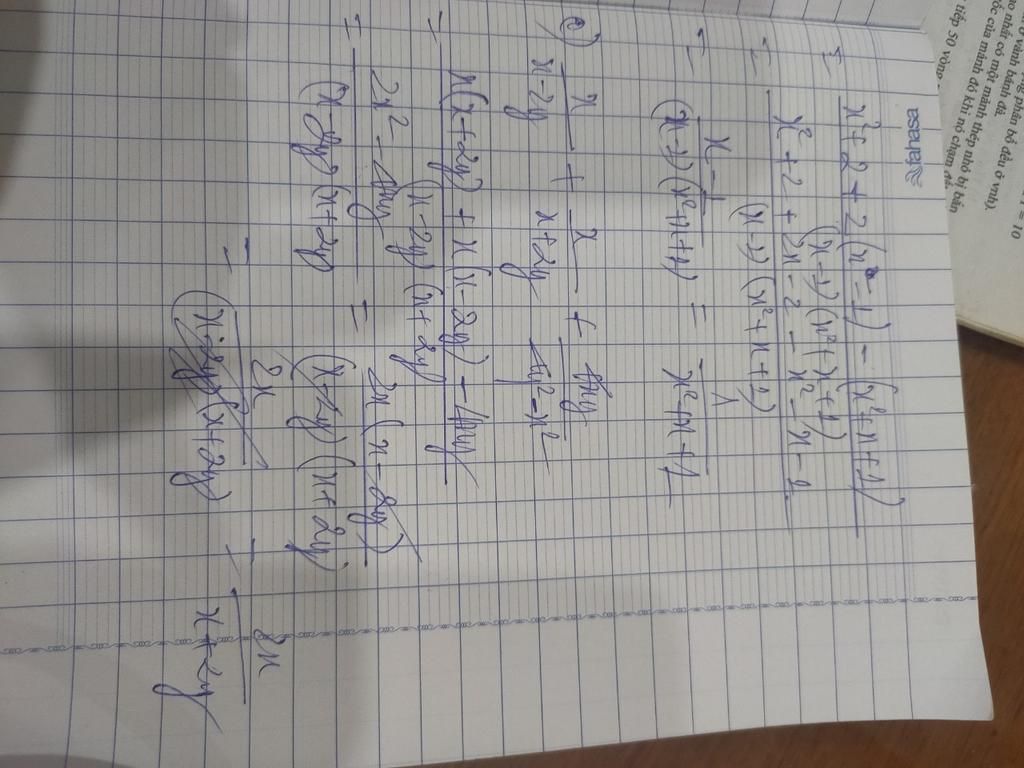 fahasa
= x² + 2 + 2(x - 1) - (x² + x + 1) / (x - 1)(x² + x + 1)
= x² + 2 + 2x - 2 - x² - x - 1 / (x - 1)(x² + x + 1)
= x - 1 / (x - 1)(x² + x + 1) = 1 / x² + x + 1
e) x / x - 2y + x / x + 2y + 4xy / 4y² - x²
= x(x + 2y) + x(x - 2y) - 4xy / (x - 2y)(x + 2y)
= 2x² - 4xy / (x - 2y)(x + 2y) = 2x(x - 2y) / (x - 2y)(x + 2y)
= 2x / (x - 2y)(x + 2y) = 2x / x + 2y
ở vành bánh đà.
ao nhất có một mảnh thép nhỏ bị bắn
ốc của mảnh đó khi nó chạm đất.
tiếp 50 vòng
phân bố đều ở vành.
= 10